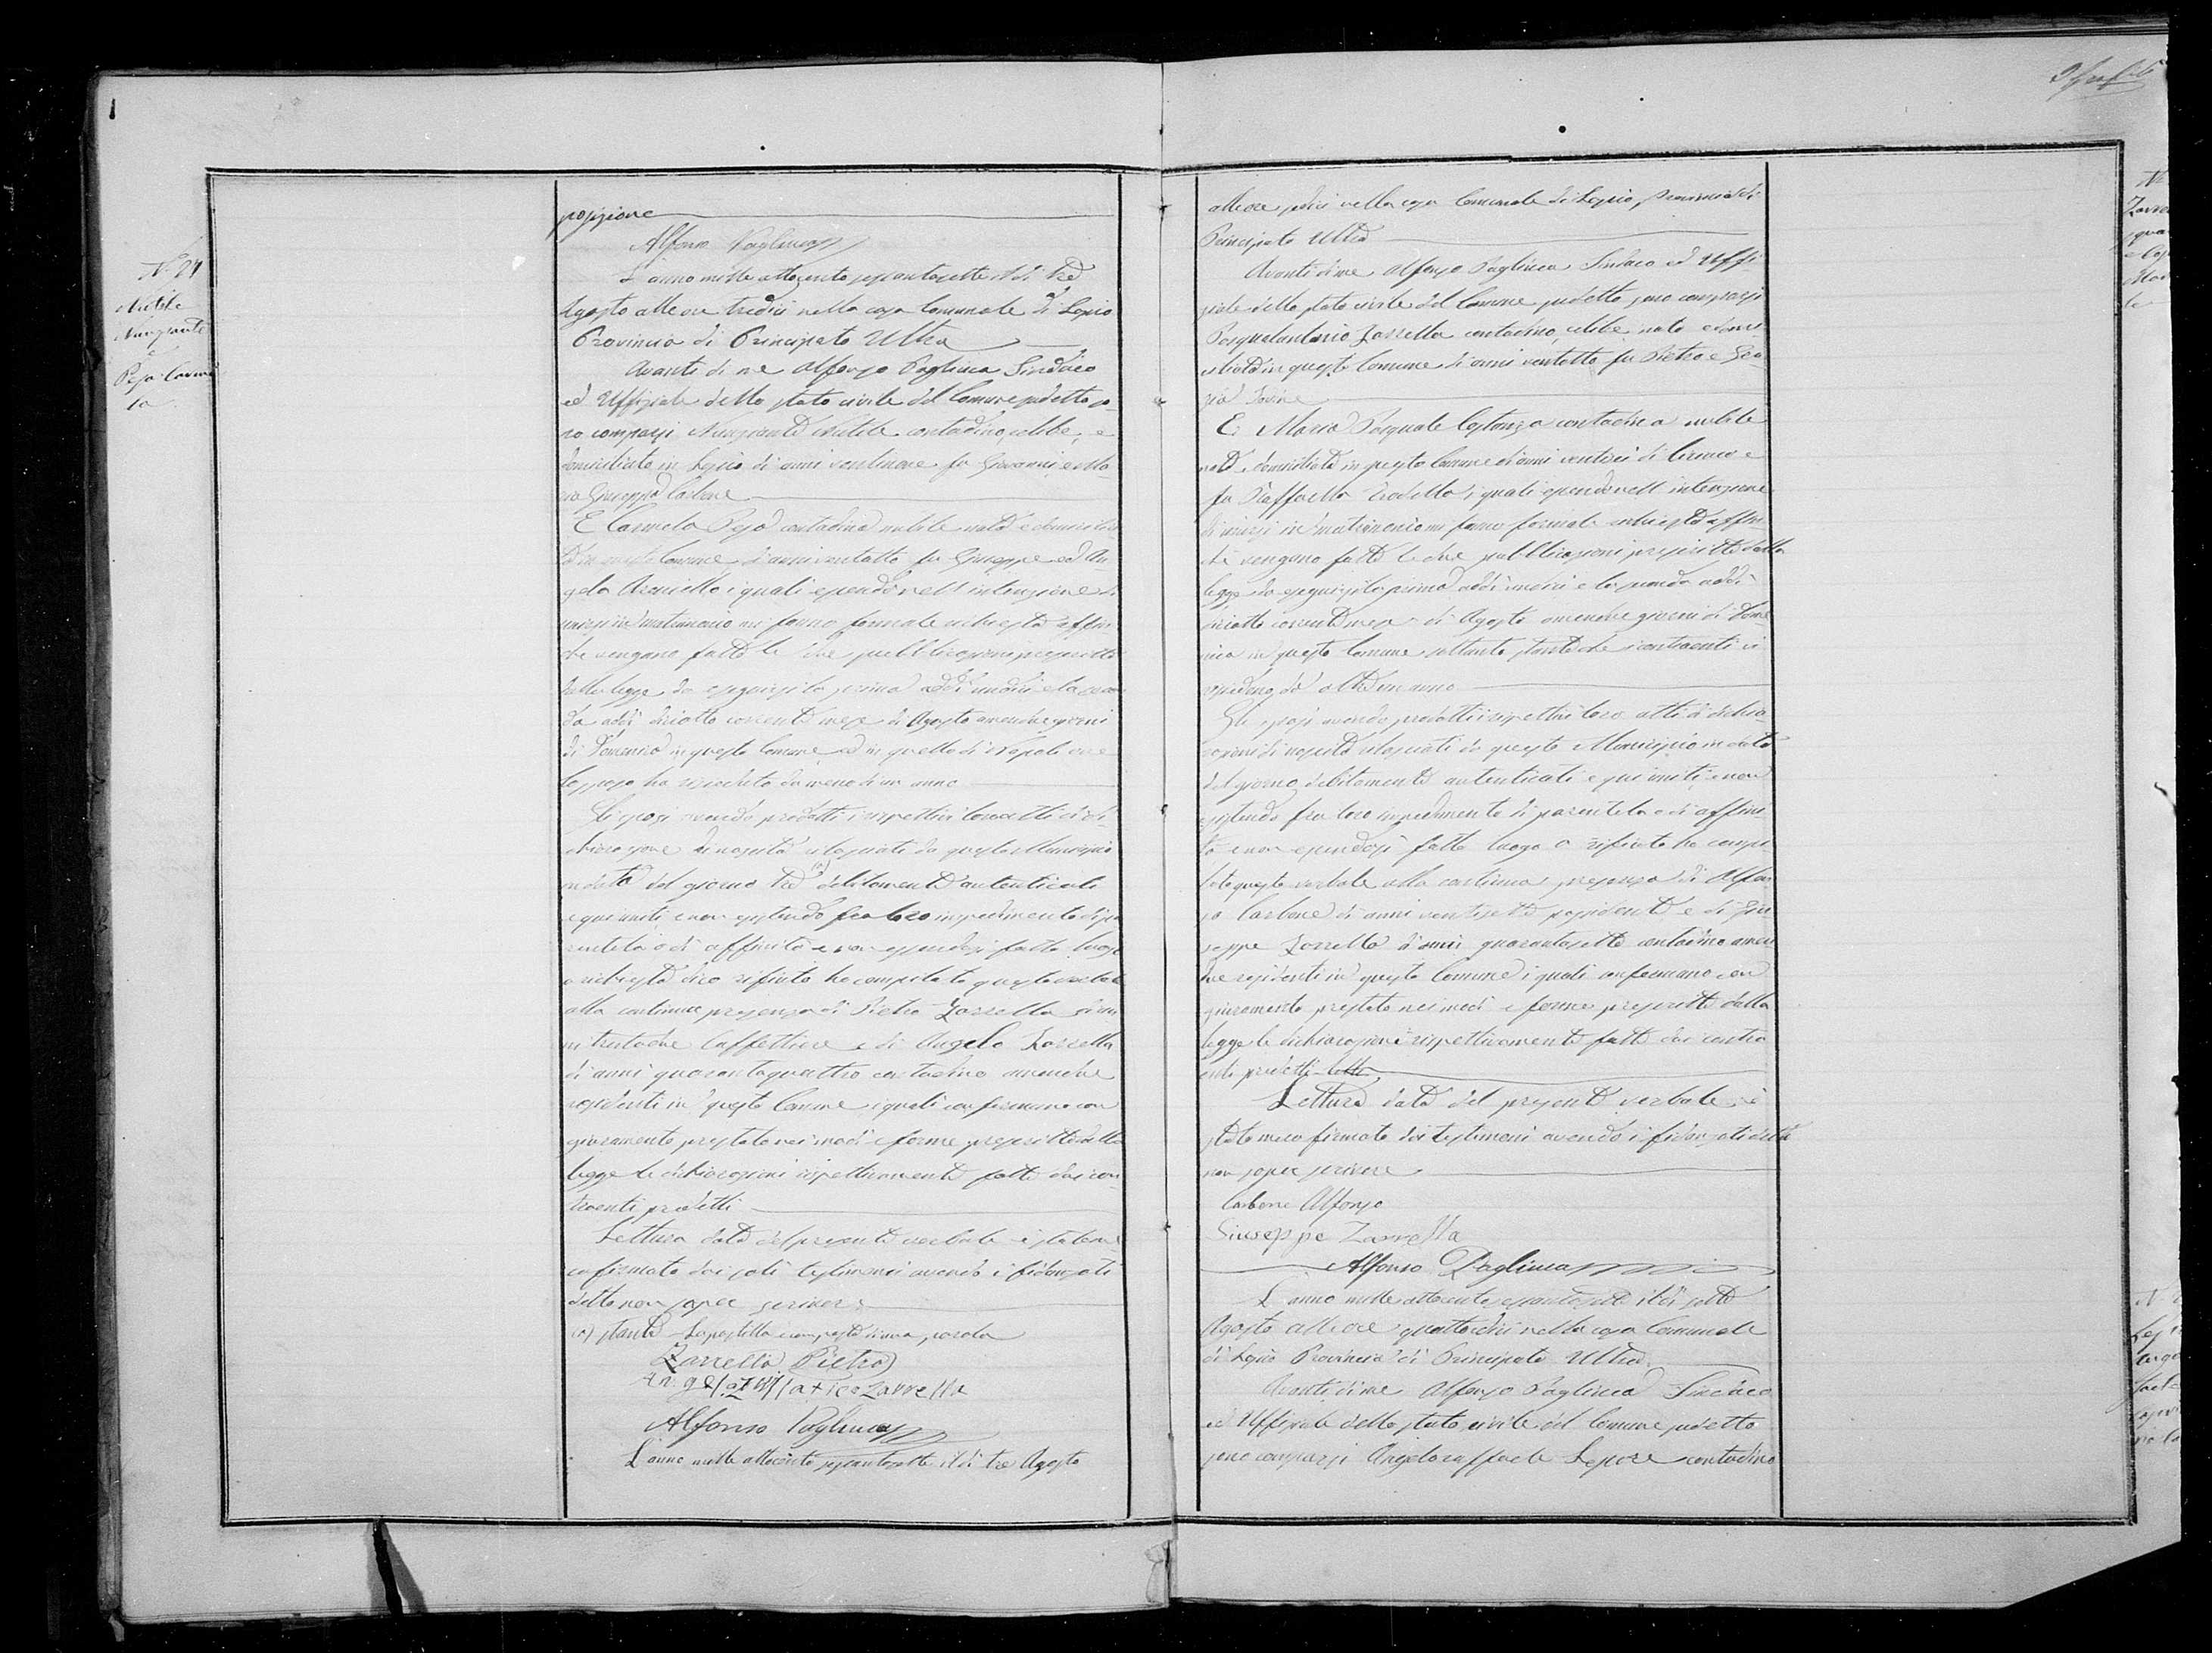 posizione
Alfonso Pagliuca
L'anno mille ottocento sessantasette il dì tre
Agosto alle ore tredici nella casa Comunale di Lapio
Provincia di Principato Ultra
Avanti di me Alfonso Pagliuca Sindaco
ed Uffiziale dello stato civile del Comune sudetto so-
no comparsi Nunziante Nittile contadino, celibe, e
domiciliato in Lapio di anni ventinove fu Giovanni e Ma-
ria Giuseppa Carbone
E Carmela Pepa contadina nubile nata e domicilia-
ta in questo Comune d'anni ventotto fu Giuseppe ed An-
gela i quali essendo nell'intenzione di
unirsi in matrimonio mi fanno formale richiesta affin-
che vengano fatte le due pubblicazioni prescritte
dalla legge da eseguirsi la prima addì undici e la secon-
da addì diciotto corrente mese di Agosto amendue giorni
di Domenica in questo Comune ed in quello di Napoli ove
lo sposo ha risieduto da meno di un anno
Gli sposi avendo prodotti i rispettivi loro atti di di-
chiarazione di nascita rilasciati da questo Municipio
in data del giorno tre (a) debitamente autenticati
e qui uniti e non esistendo fra loro impedimento di pa-
rentela o di affinità e non essendosi fatto luogo
a richiesta dico rifiuto ho compilato questo verbale
alla continua presenza di Pietro Zarrella di an-
ni trentadue Caffettiere e di Angelo Zarrella
di anni quarantaquattro contadino amendue
residenti in questo Comune i quali confermano con
giuramento prestato nei modi e forme prescritte dalla
legge le dichiarazioni rispettivamente fatte dai con-
traenti predetti
Lettura data del presente verbale è stato me-
co firmato dai soli testimoni avendo i fidanzati
detto non saper scrivere
(a) stante - La postilla è composta di una parola
Zarrella Pietro
Zarrella
Alfonso Pagliuca
L'anno mille ottocento sessantasette il dì tre Agosto
N.° 24
Nittile
Nunziante
e
Pepa Carme
la
alle ore sedici nella casa Comunale di Lapio, Provincia di
Principato Ultra
Avanti di me Alfonso Pagliuca Sindaco ed Uffi-
ziale dello stato civile del Comune sudetto sono comparsi
Pasqualantonio Zarrella contadino, celibe nato e domi-
ciliato in questo Comune di anni ventotto fu Pietro e Gra-
zia Iovine
E Maria Pasquale Costanza contadina nubile
nata e domiciliata in questo Comune di anni ventisei di Ciriaco e
fu Raffaella i quali essendo nell'intenzione
di unirsi in matrimonio mi fanno formale richiesta affin-
chè vengano fatte le due pubblicazioni prescritte dalla
legge da eseguirsi la prima addì undici e la seconda addì
diciotto corrente mese di Agosto amendue giorni di Dome-
nica in questo Comune soltanto stante che i contraenti vi
risiedono da oltre un anno
Gli sposi avendo prodotti i rispettivi loro atti di dichia-
razioni di nascita rilasciati da questo Municipio in data
del giorno, debitamente autenticati e qui uniti e non
esistendo fra loro impedimento di parentela o di affini-
tà e non essendosi fatto luogo a rifiuto ho compi-
lato questo verbale alla continua presenza di Alfon-
so Carbone di anni ventisette possidente e di Giu-
seppe Zarrella d'anni quarantasette contadino amen-
due residenti in questo Comune i quali confermano con
giuramento prestato nei modi e forme prescritte dalla
legge le dichiarazioni rispettivamente fatte dai contra-
enti predetti
Lettura data del presente verbale è
stato meco firmato dai testimoni avendo i fidanzati detto
non saper scrivere
Carbone Alfonso
Giuseppe Zarrella
Alfonso Pagliuca
L'anno mille ottocento sessantasette il dì sette
Agosto alle ore quattordici nella casa Comunale
di Lapio Provincia di Principato Ultra
Avanti di me Alfonso Pagliuca Sindaco
ed Uffiziale dello stato civile del Comune sudetto
sono comparsi Angeloraffaele Lepore contadino